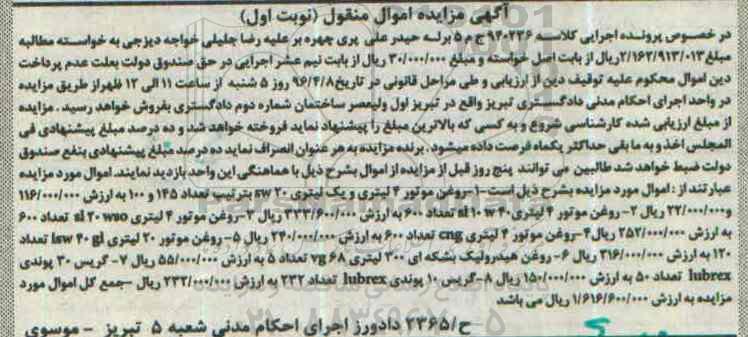 آگهی مزایده اموال منقول (نوبت اول)
در خصوص پرونده اجرایی کلاسه ۹۴۰۲۳۶ ج م ۵ برله حیدر علی پری چهره بر علیه رضا جلیلی خواجه دیزجی به خواسته مطالبه
مبلغ ۲/۱۶۲/۹۱۳/۰۱۳ ریال از بابت اصل خواسته و مبلغ ۳۰/۰۰۰/۰۰۰ ریال از بابت نیم عشر اجرایی در حق صندوق دولت بعلت عدم پرداخت
دین اموال محکوم علیه توقیف دین از ارزیابی و طی مراحل قانونی در تاریخ ۹۶/۴/۸ روز ۵ شنبه از ساعت ۱۱ الی ۱۲ ظهر از طریق مزایده
در واحد اجرای احکام مدنی دادگستری تبریز واقع در تبریز اول ولیعصر ساختمان شماره دوم دادگستری بفروش خواهد رسید . مزایده
از مبلغ ارزیابی شده کارشناسی شروع و به کسی که بالاترین مبلغ را پیشنهاد نماید فروخته خواهد شد و ده درصد مبلغ پیشنهادی فی
المجلس اخذ و به ما بقی حداکثر یکماه فرصت داده میشود . برنده مزایده به هر عنوان انصراف نماید ده درصد مبلغ پیشنهادی بنفع صندوق
دولت ضبط خواهد شد طالبین می توانند پنج روز قبل از مزایده از اموال بشرح ذیل با هماهنگی این واحد بازدید نمایند. اموال مورد مزایده
عبارتند از : اموال مورد مزایده بشرح ذیل است-۱-روغن موتور ۴ لیتری و یک لیتری sw ۲۰ بترتیب تعداد ۱۴۵ و ۱۰۰ به ارزش ۱۱۶/۰۰۰/۰۰۰
و ۲۲/۰۰۰/۰۰۰ ریال ۲- روغن موتور ۴ لیتری sl ۱۰ w ۴۰ تعداد ۶۰۰ به ارزش ۳۳۳/۶۰۰/۰۰۰ ریال ۳-روغن موتور ۴ لیتری sl ۲۰ w۵۰ تعداد ۶۰۰
به ارزش ۲۵۲/۰۰۰/۰۰۰ ریال ۴-روغن موتور ۴ لیتری cng تعداد ۶۰۰ به ارزش ۲۴۰/۰۰۰/۰۰۰ ریال ۵- روغن موتور ۲۰ لیتری lsw ۴۰ gl تعداد
۱۲۰ به ارزش ۳۱۶/۰۰۰/۰۰۰ ریال ۶- روغن هیدرولیک بشکه ای ۳۰۰ لیتری vg ۶۸ تعداد ۵ به ارزش ۵۵/۰۰۰/۰۰۰ ریال ۷- گریس ۳۰ پوندی
lubrex تعداد ۵۰ به ارزش ۱۵۰/۰۰۰/۰۰۰ ریال ۸-گریس ۱۰ پوندی lubrex تعداد ۲۳۲ به ارزش ۲۳۲/۰۰۰/۰۰۰ ریال -جمع کل اموال مورد
مزایده به ارزش ۱/۶۱۶/۶۰۰/۰۰۰ ریال می باشد
ح/۲۳۶۵ دادورز اجرای احکام مدنی شعبه ۵ تبریز - موسوی